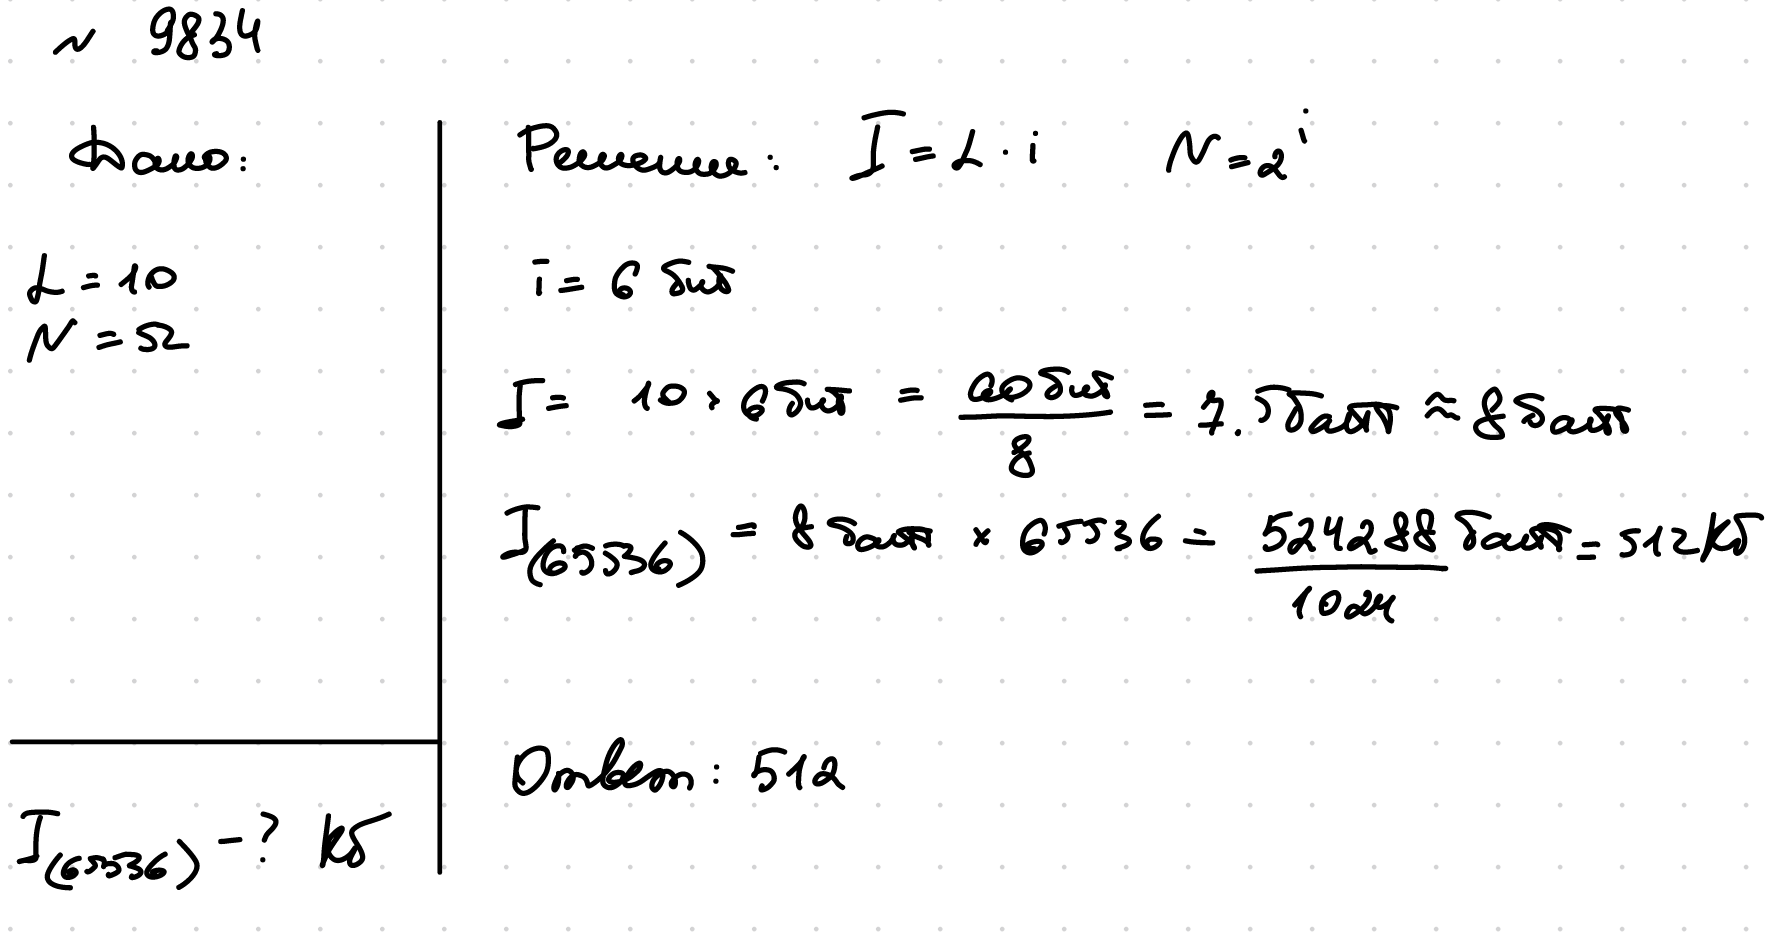 ~ 9834
Дано:
L = 10
N = 52
I(65536) - ? Кб
Решение: I = L · i N = 2^i
i = 6 бит
I = 10 · 6 бит = 60 бит / 8 = 7.5 байт ≈ 8 байт
I(65536) = 8 байт × 65536 = 524288 байт / 1024 = 512 Кб
Ответ: 512